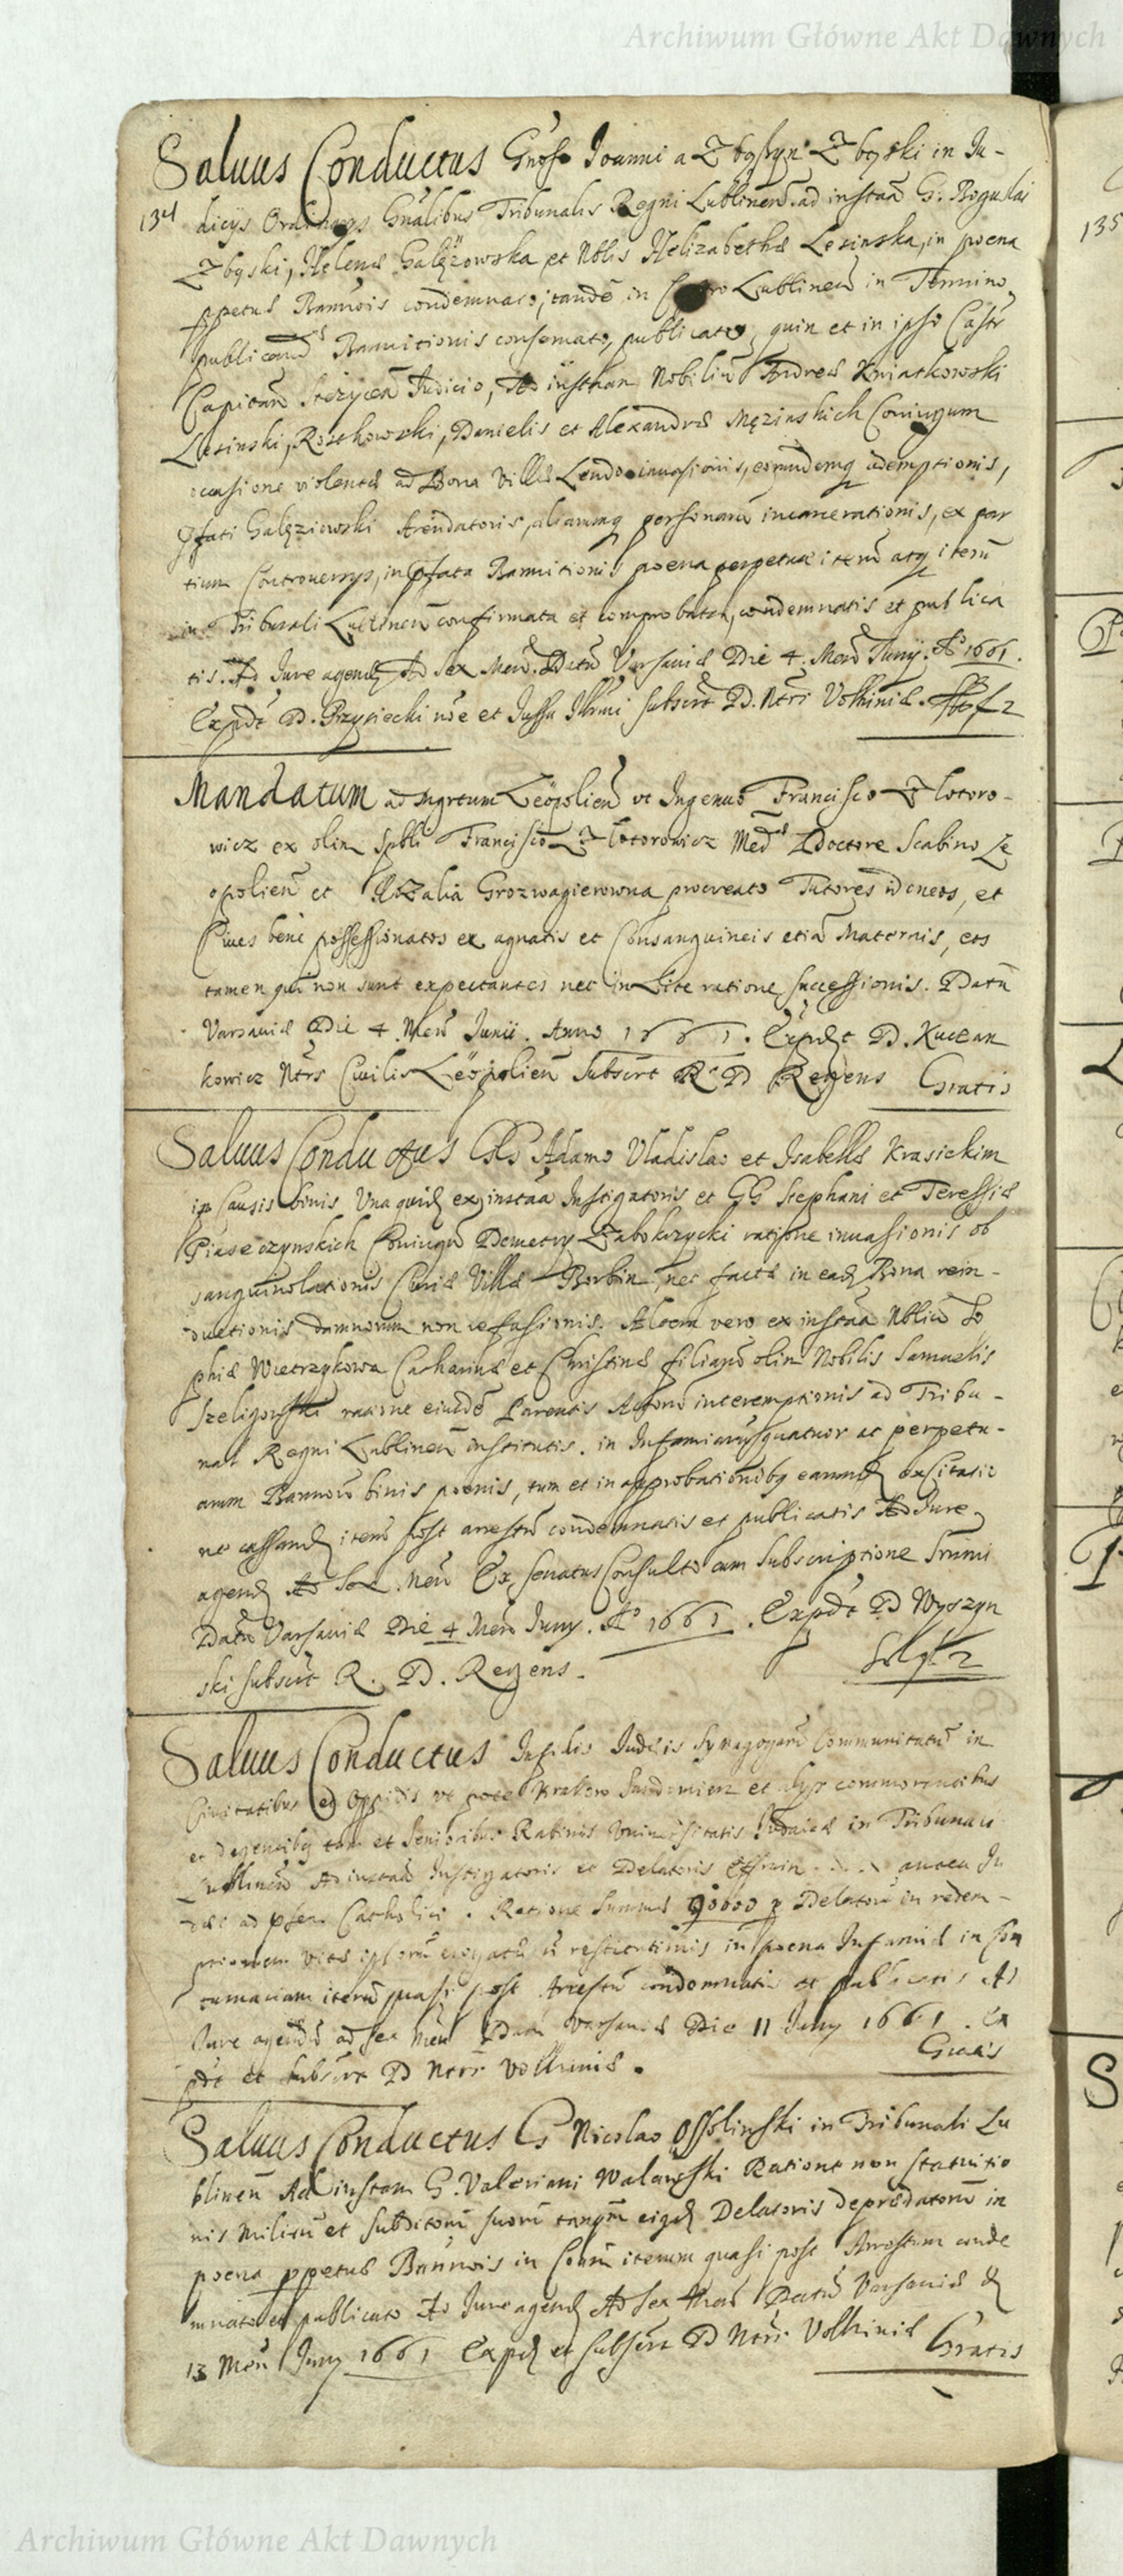 Archiwum Główne Akt Dawnych
Saluus Conductus Gnoso Joanni a Zbąski in Ju-
134 dicijs Ordinarijs Gnalibus Tribunalis Regni Lublinen ad instaā G. Boguslai
Zbąski, Helenæ Galęzowska et Nblis Helizabethæ Lesinska, in poena
ppetuæ Bannois condemnato, tandē in Lublinen in Termino
publicandæ Bannitionis consernato, publicato, quin et in ipso Castr
Capitan Stezycen Judicio, Ad instaan Nobiliū Andreæ Kwiatkowski
Lesinski, Roschowski, Danielis et Alexandræ Męzinskich Coniugum
occasione violentæ ad Bona Villæ Lendo inuasionis, eorundemq ademptionis,
Pfati Galęziowski Arendatoris, aliarumq personarū incarcerationis, ex par
tium Controuersys, in pfata Bannitionis poena perpetua iterū atq iterū
in Tribunali Lublinen confirmata et comprobata, condemnatis et publica
tis. Ad Jure agendɰ Ad sex Men. Datū Varsauiæ Die 4. Men Juny. Aō 1661.
Expdt D. Przysiecki noe et Jussu Illmi subscrt D. Ntri Volhiniæ.
Mandatum ad Mgrtum Leopolien vt Ingenuo Francisco Zlotoro-
wicz ex olim Spbli Francisco Zlotorowicz Medæ Doctore Scabino Le
opolien et Rozalia Grozwagierowna procreato Tutores idoneos, et
Ciues bene possessionatos ex agnatis et Consanguineis etiā Maternis, eos
tamen qui non sunt expectantes nec in Lite ratione successionis. Datū
Varsauiæ Die 4. Men Junii. Anno 1661. Expdt D. Kuczan
kowicz Ntrs Ciuilis Leopolien Subscrt R. D Regens Gratis
Saluus Conductus Adamo Vladislao et Isabellæ Krasickim
in Causis binis Vna quidē ex instaā Instigatoris et GG Stephani et Teressiæ
Piaseczynskich Coniugū Demetry Zabokrzycki ratione inuasionis ob
sanguinolationis Curiæ Villæ Borbin, nec factæ in eadē Bona rein-
ductionis damnorum non refusionis. Altera vero ex instaā Nbliū So
phiæ Wietrzykowa Catharinæ et Christinæ filiarū olim Nobilis Samuelis
Szeligowski ratione eiusdē Parentis Actorū interemptionis ad Tribu-
nal Regni Lublinen institutis. in Infamiarū quatuor ac perpetu-
arum Bannorū binis poenis, tum et in approbationibq earumdē ex citatio
ne cassandē iterū post arrestū condemnatis et publicatis Ad Jure
agendē Ad Sex Men Ex Senatus Consulto cum Subscriptione Srmmi
Datū Varsauiæ Die 4 Men Juny. Aō 1661. Expdt D Wyszyn
ski subscrt R. D. Regens.
Saluus Conductus Infidis Judæis Synagogarū Communitatū in
Ciuitatibus et Oppidis vt pote Krakow Sandomien et alys commorantibus
et degentibq tam et Senioribus Rabinis Vniuersitatis Judaicæ in Tribunali
Lublinen Ad instaā Instigatoris et Delatoris antea Ju
dæi ad psens Catholici. Ratione Summæ 90000 p Delatorē in redem-
ptionem vitæ ipsorū erogatæ restitutionis in poena Infamiæ in Con
tumaciam iterū quasi post Arrestū condemnatis et publicatis Ad
Jure agendū ad sex Men Datū Varsauiæ Die 11 Juny 1661. Ex
pdt et subscrt D Ntri Volhiniæ. Gratis
Saluus Conductus G Nicolao Ossolinski in Tribunali Lu
blinen Ad instam G. Valeriani Walewski Ratione non statuitio
nis Militū et subditorū suorū tanqm eiqdē Delatoris deprædatorū in
poena ppetuæ Bannois in Contū iterum quasi post Arrestum conde
mnato et publicato Ad Jure agendē Ad sex Men Datū Varsauiæ d
13 Men Juny 1661 Expdē et subscrt D Ntri Volhiniæ Gratis
135
Archiwum Główne Akt Dawnych